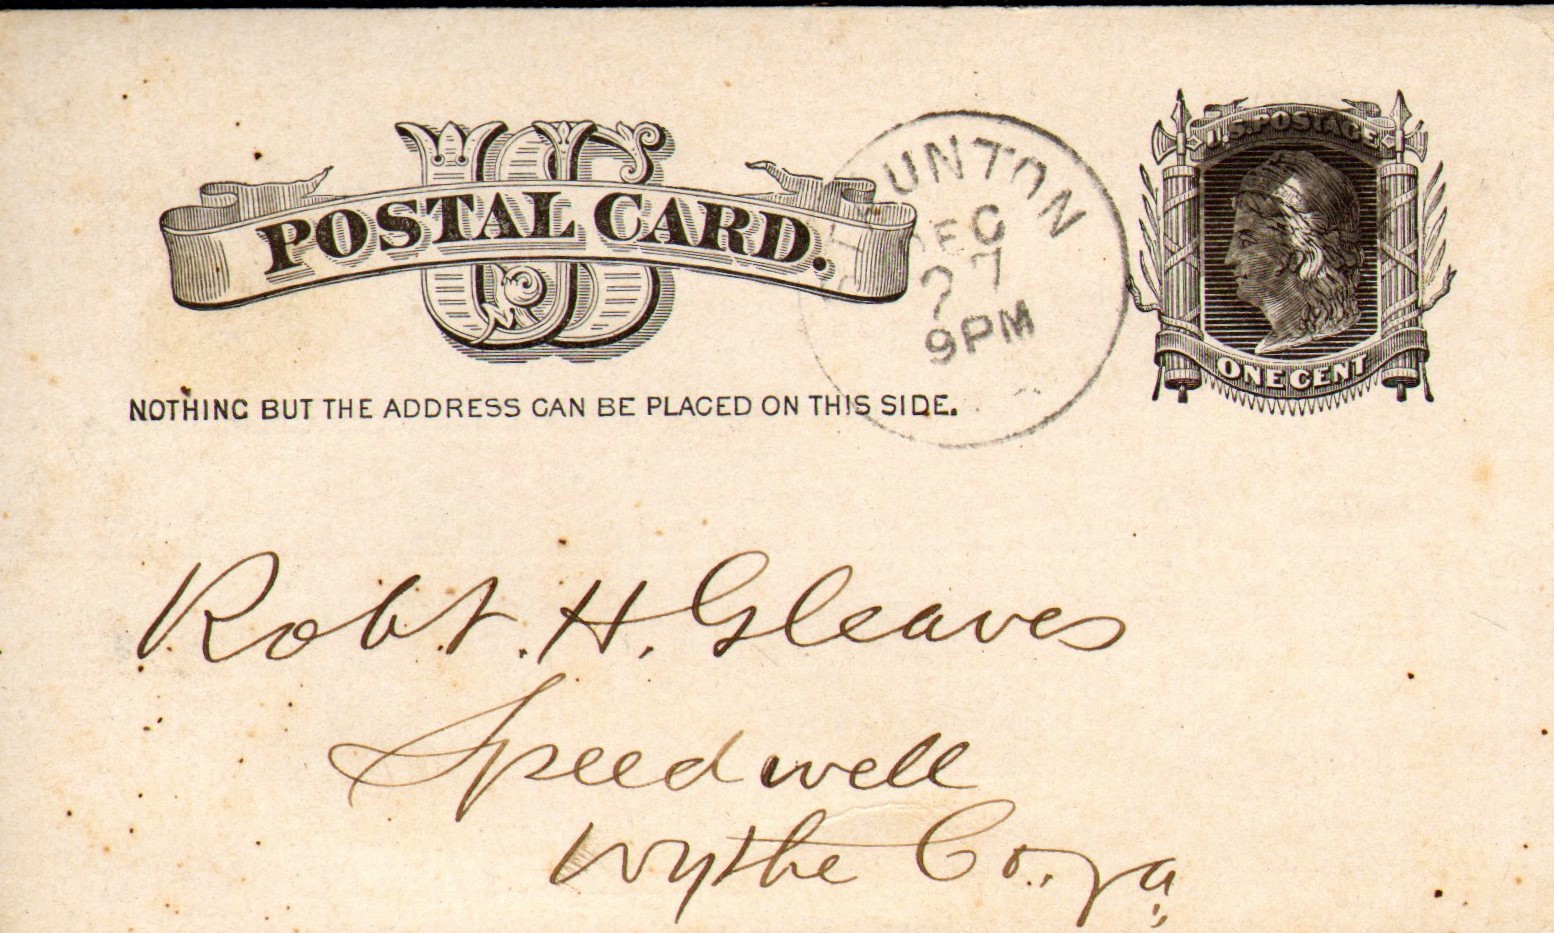 US
POSTAL CARD.
UNTON
DEC
27
9PM
U.S. POSTAGE
ONE CENT
NOTHING BUT THE ADDRESS CAN BE PLACED ON THIS SIDE.
Robt. H. Gleaves
Speedwell
Wythe Co. Va